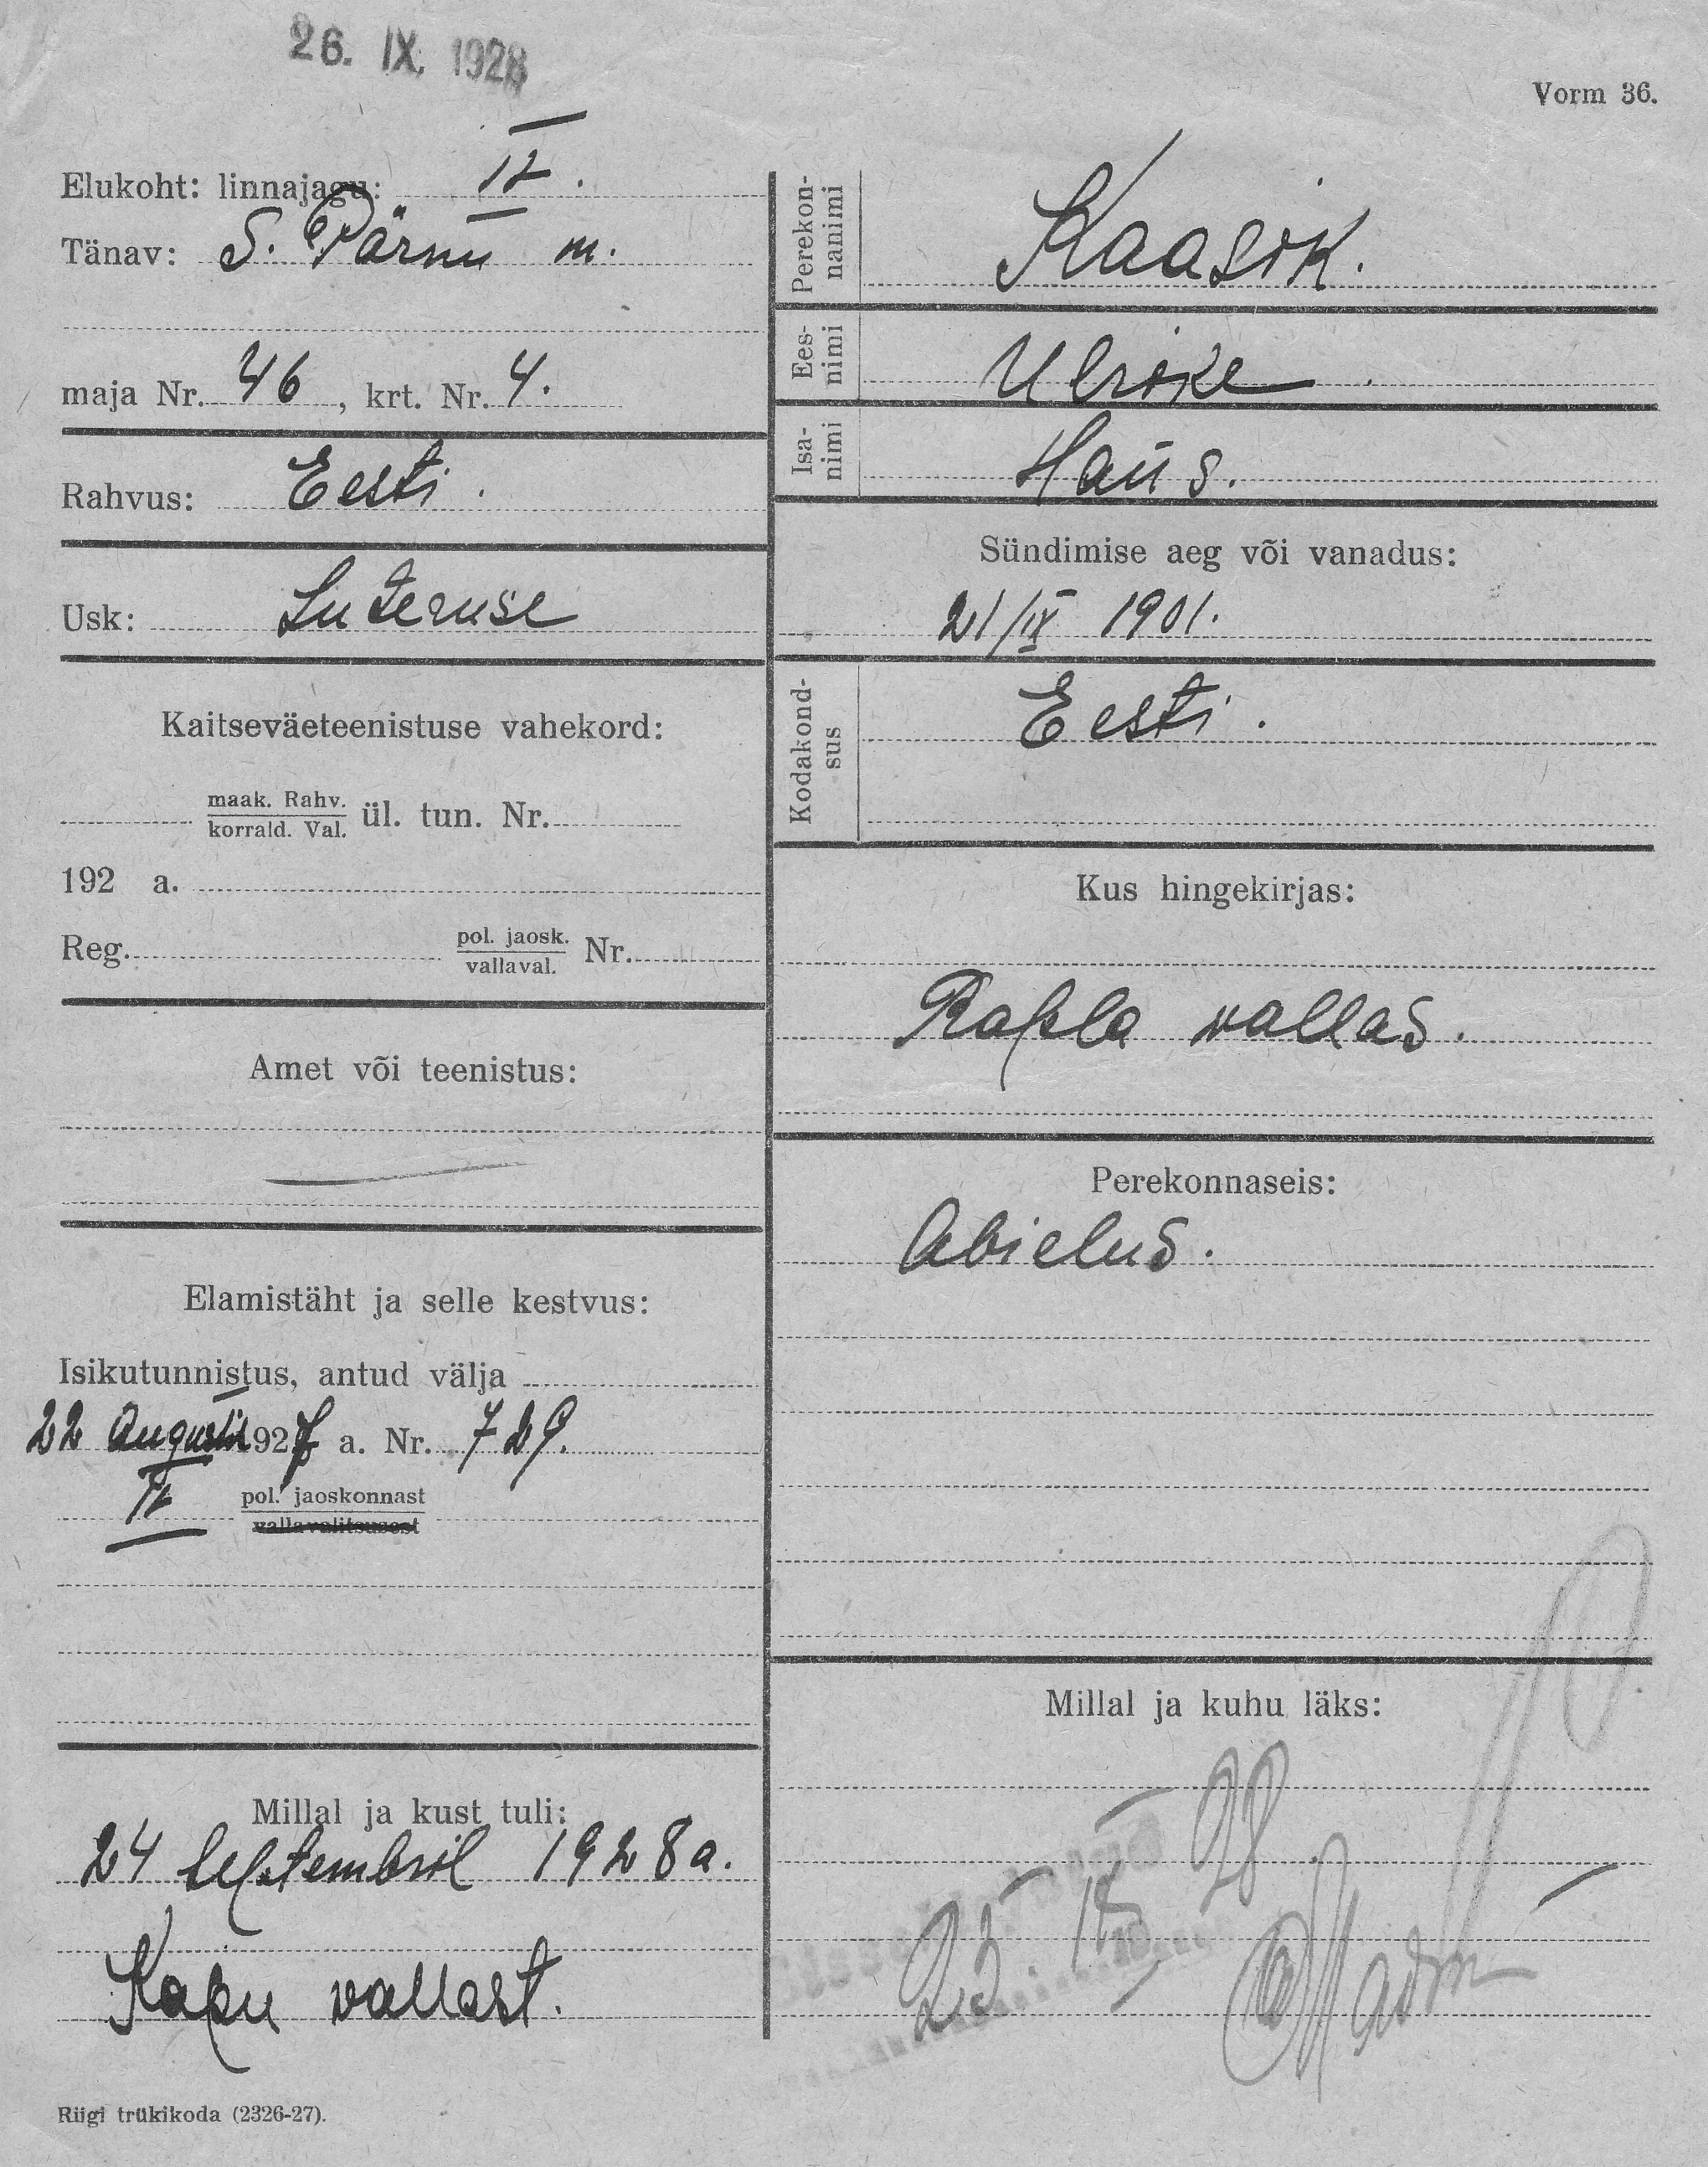 26. IX. 1928
Vorm 36.
Elukoht: linnajagu: II.
Tänav: S. Pärnu m.
maja Nr. 46, krt. Nr. 4.
Rahvus: Eesti.
Usk: Luteruse
Kaitseväeteenistuse vahekord:
maak. Rahv.
korrald. Val.
ül. tun. Nr.
192 a.
Reg.
pol. jaosk.
vallaval.
Nr.
Amet või teenistus:
Elamistäht ja selle kestvus:
Isikutunnistus, antud välja
22 Augustil 1927 a. Nr. 729.
II pol. jaoskonnast
vallavalitsusest
Millal ja kust tuli:
24 septembril 1928 a.
Kapu vallast.
Riigi trükikoda (2326-27).
Perekon-
nanimi
Kaasik.
Ees-
nimi
Ulrike.
Isa-
nimi
Hans.
Sündimise aeg või vanadus:
21/IX 1901.
Kodakond-
sus
Eesti.
Kus hingekirjas:
Rapla vallas.
Perekonnaseis:
Abielus.
Millal ja kuhu läks:
28
25